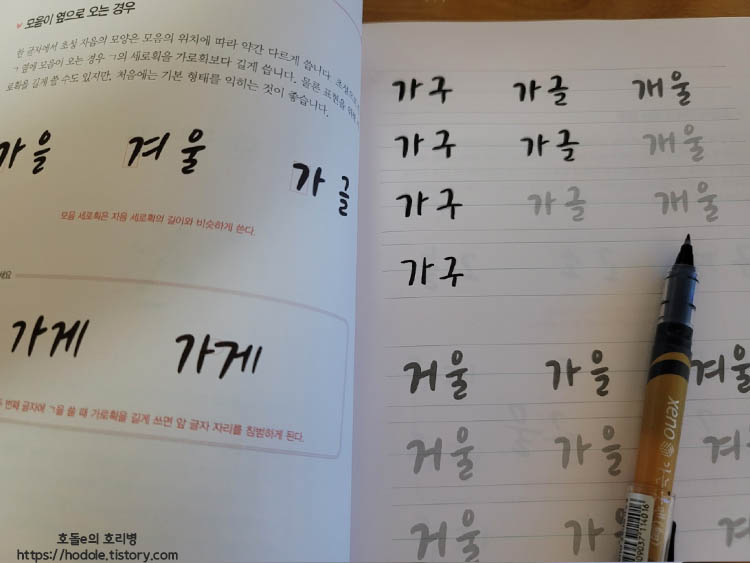 모음이 옆으로 오는 경우
한 글자에서 초성 자음의 모양은 모음의 위치에 따라 약간 다르게 씁니다. 초성으로
ㄱ 옆에 모음이 오는 경우 ㄱ의 세로획을 가로획보다 길게 씁니다. 물론 표현을 위해
로획을 길게 쓸 수도 있지만, 처음에는 기본 형태를 익히는 것이 좋습니다.
가을 겨울 가글
모음 세로획은 자음 세로획의 길이와 비슷하게 쓴다.
세요
가게 가게
번째 글자에 ㄱ을 쓸 때 가로획을 길게 쓰면 앞 글자 자리를 침범하게 된다.
호돌e의 호리병
https://hodole.tistory.com
가구 가글 개울
가구 가글 개울
가구 가글 개울
가구
거울 가을 겨울
거울 가을 겨
거울 가
xeno
809037 114016